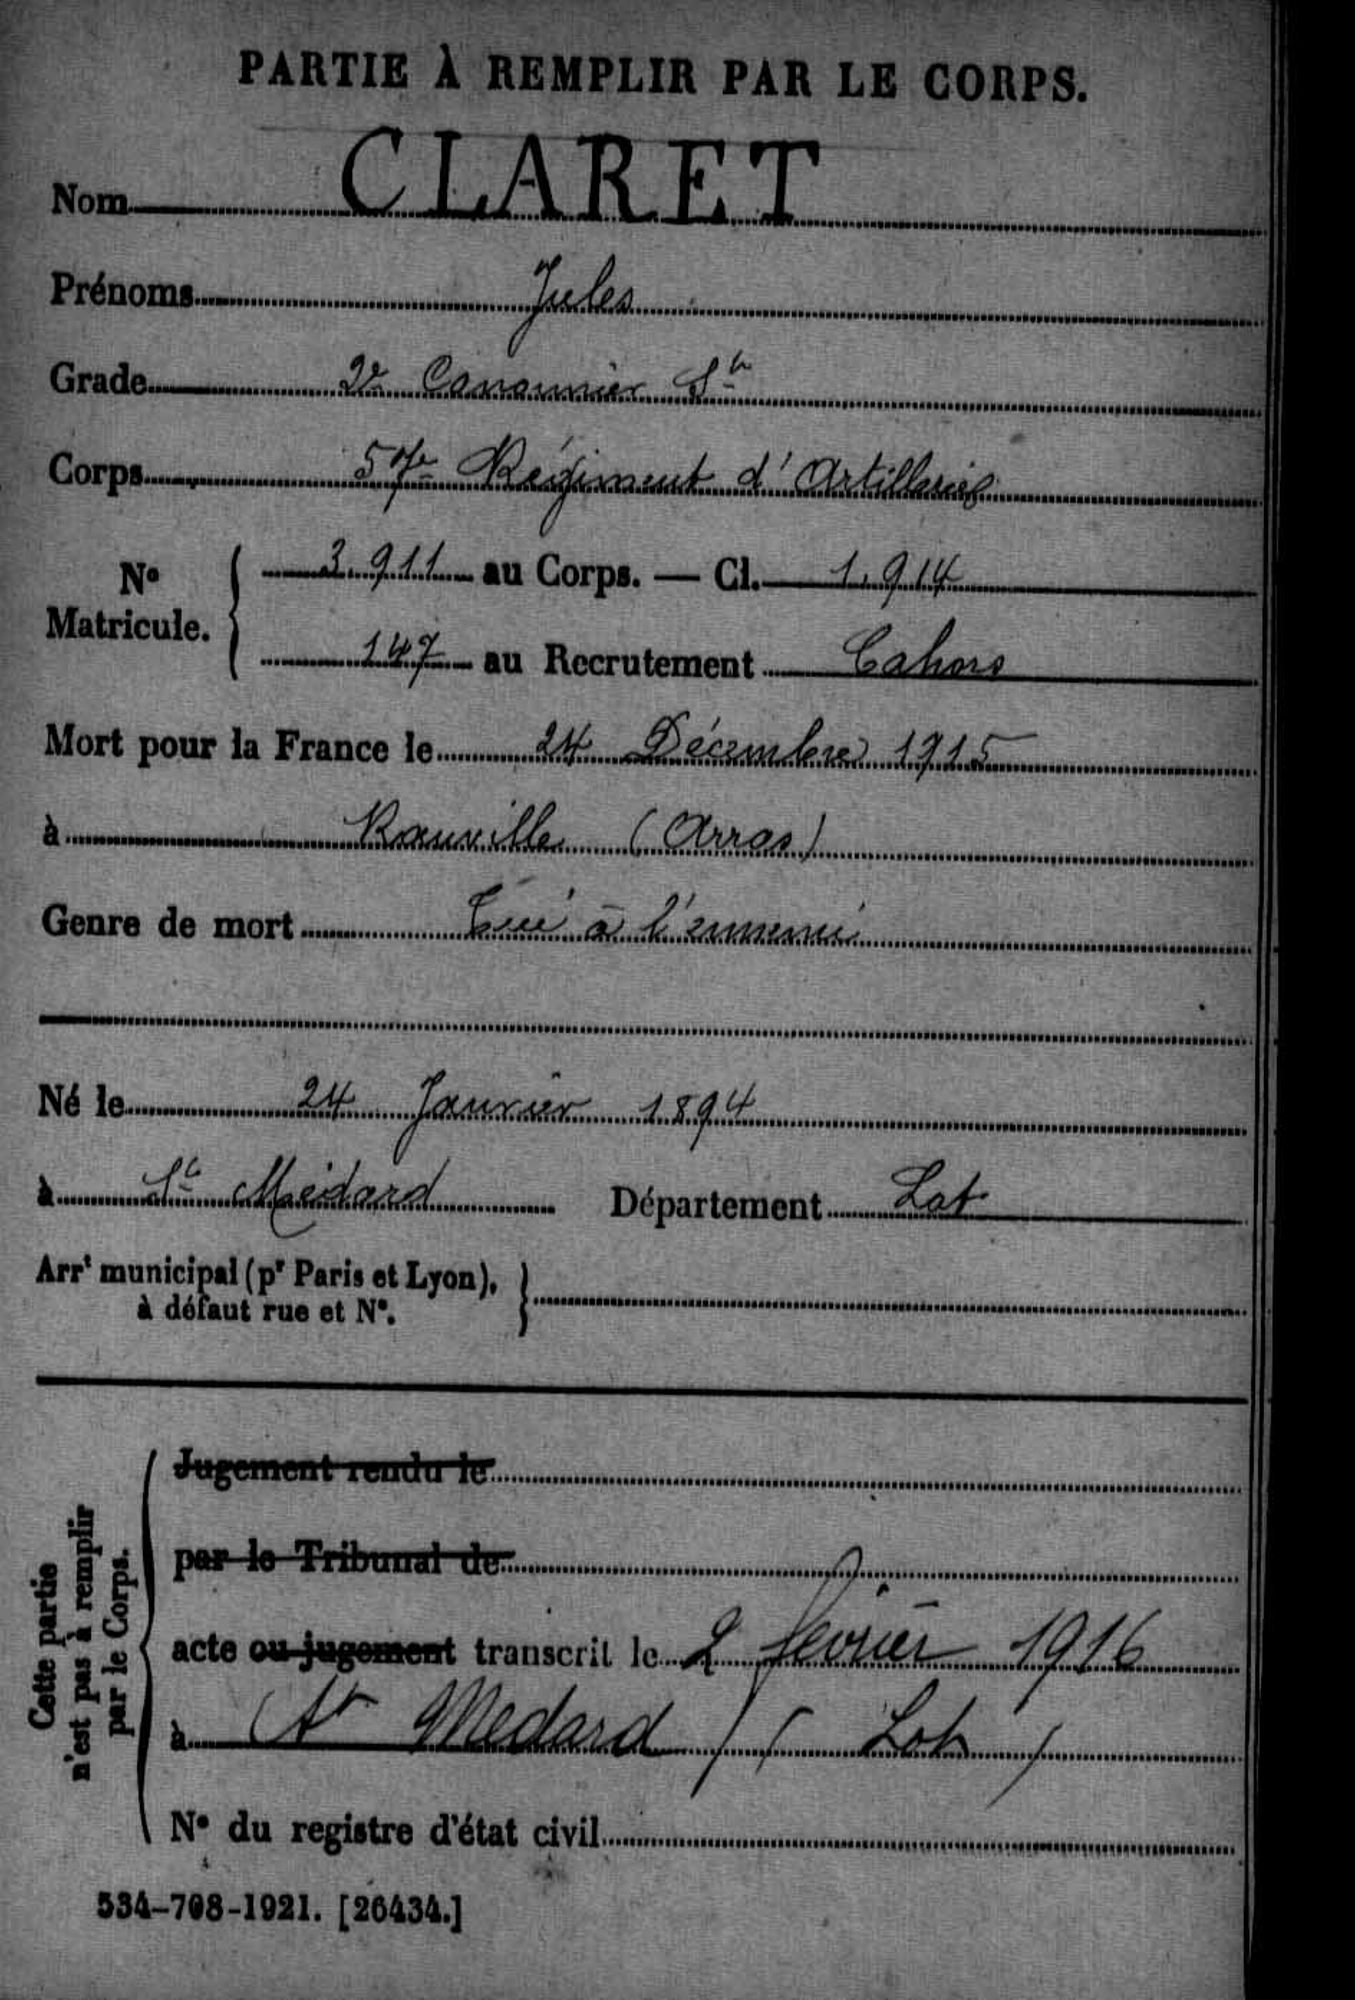 PARTIE À REMPLIR PAR LE CORPS.
Nom CLARET
Prénoms Jules
Grade 2e Canonnier St
Corps 57e Régiment d'Artillerie
No Matricule. { 3.911 au Corps. — Cl. 1.914
147 au Recrutement Cahors
Mort pour la France le 24 Décembre 1915
à (Arras)
Genre de mort Tué à l'ennemi
Né le 24 Janvier 1894
à St Médard Département Lot
Arrt municipal (pr Paris et Lyon), }
à défaut rue et No.
Cette partie
n'est pas à remplir
par le Corps.
Jugement rendu le
par le Tribunal de
acte ou jugement transcrit le 2 février 1916
à St Medard (Lot)
No du registre d'état civil
534-708-1921. [26434.]